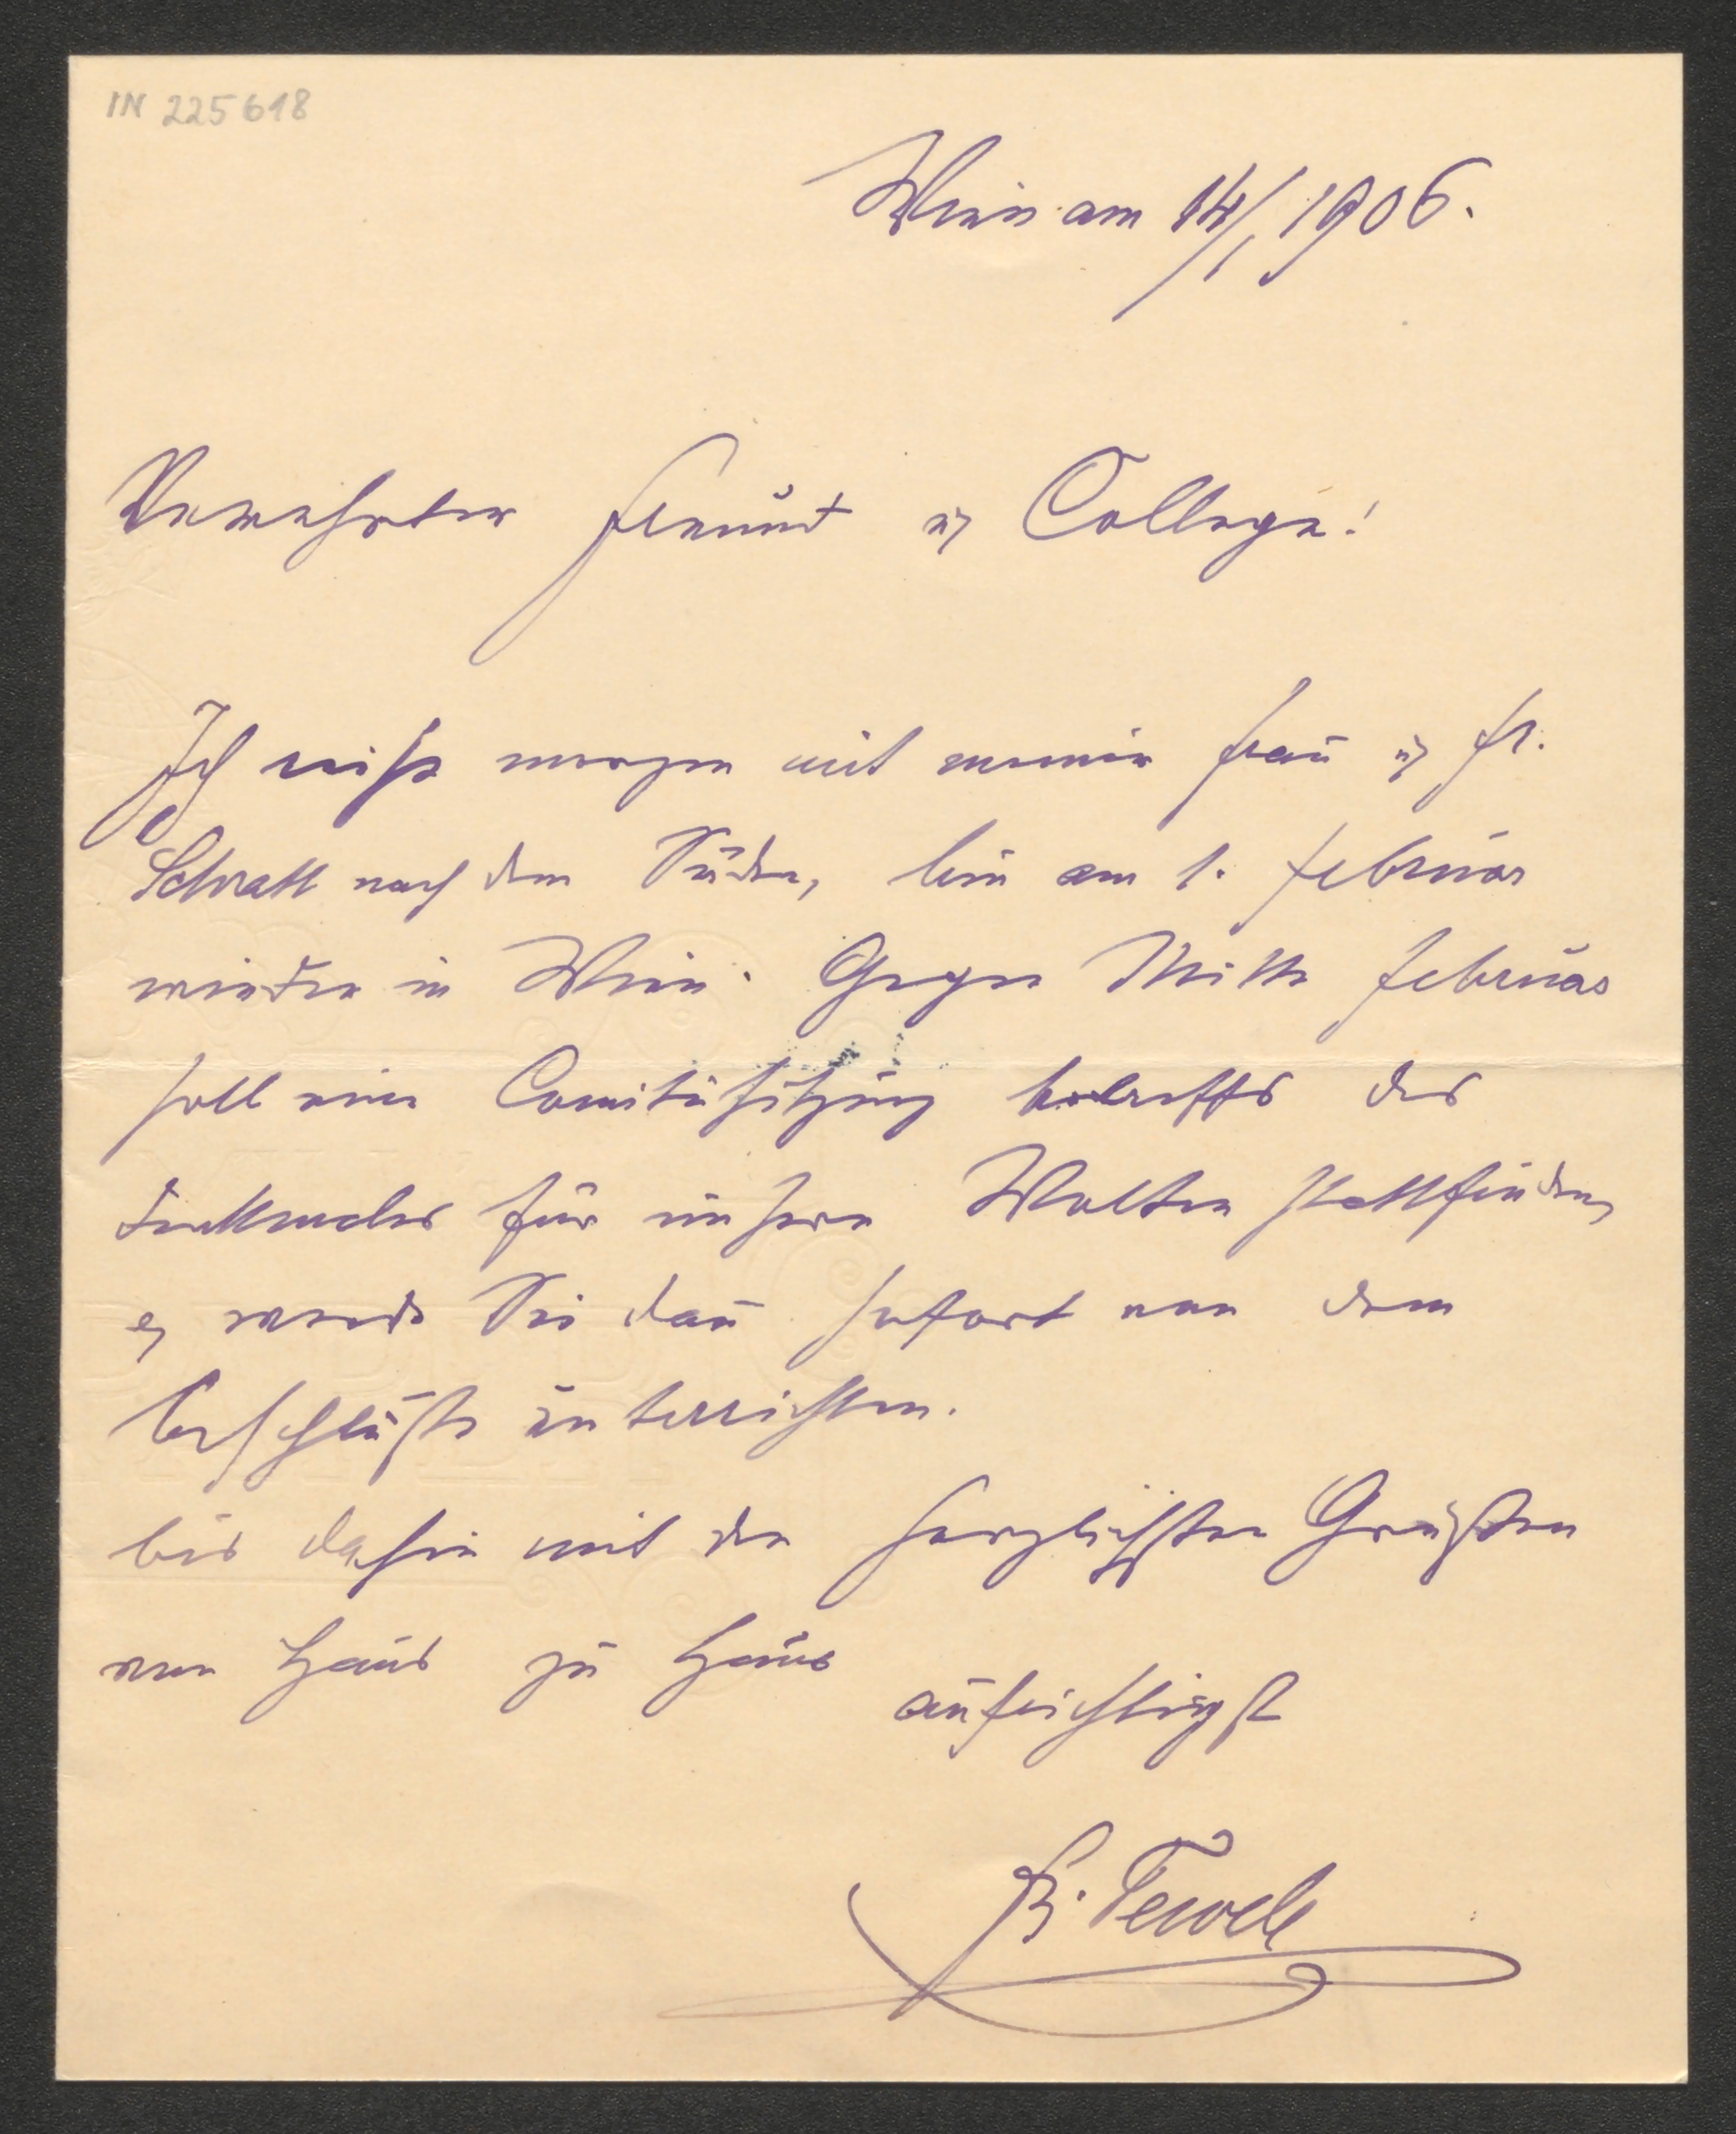 IN 225618
Wien am 14/1 1906.
Verehrter Freund u College!
Ich reise morgen mit meiner Frau u Fr.
Schratt nach dem Süden, bin am 1. Februar
wieder in Wien. Gegen Mitte Februar
soll eine Comitésitzung betreffs des
Denkmales für unsere Wolter stattfinden,
u werde Sie dan̄ sofort von dem
Beschluße unterrichten.
bis dahin mit den herzlichsten Grüßen
von Haus zu Haus
aufrichtigst
F. Tewele